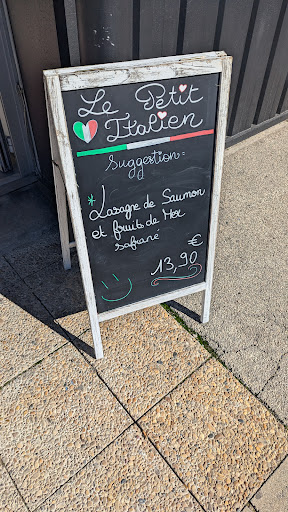 Le Petit
Italien
Suggestion:
* Lasagne de Saumon
et fruits de Mer
safrané
€
13,90